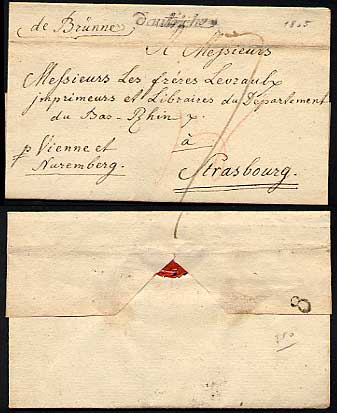 de Brünne
D'autriche
1805
A Messieurs
Messieurs Les frères Levrault
jmprimeurs et Libraires du Département
du Bas-Rhin
à
p Vienne et
Nuremberg.
Strasbourg.
8